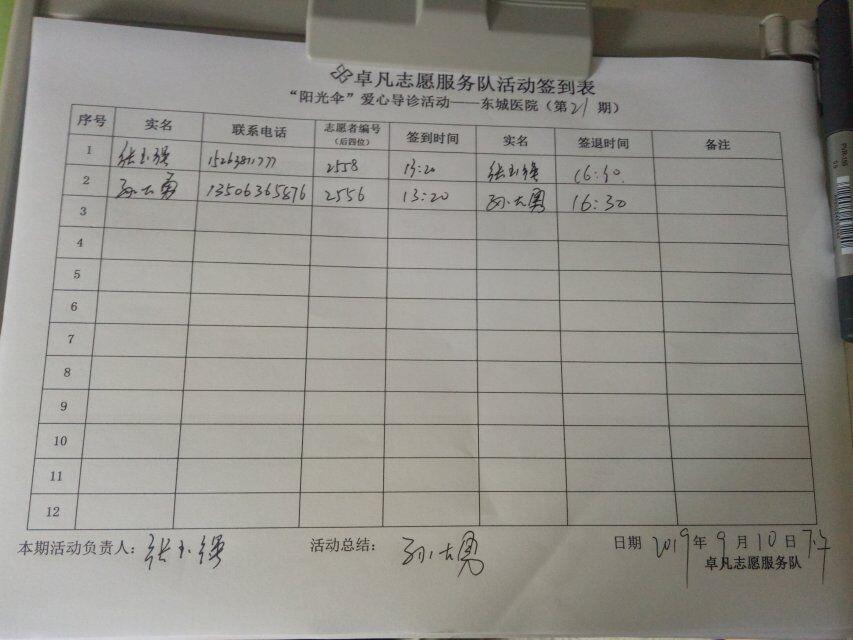 卓凡志愿服务队活动签到表
“阳光伞”爱心导诊活动——东城医院（第21期）
序号 实名 联系电话 志愿者编号（后四位） 签到时间 实名 签退时间 备注
1 张玉强 2558 13:20 张玉强 16:30
2 孙大勇 13506365876 2556 13:20 孙大勇 16:30
3
4
5
6
7
8
9
10
11
12
本期活动负责人：张玉强 活动总结：孙大勇 日期 2019年9月10日下午
卓凡志愿服务队